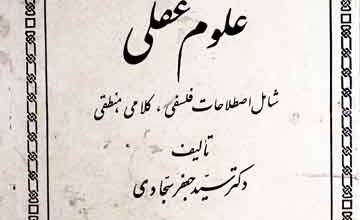 علوم عقلی
شامل اصطلاحات فلسفی، کلامی منطقی
تألیف
دکتر سید جعفر سجادی